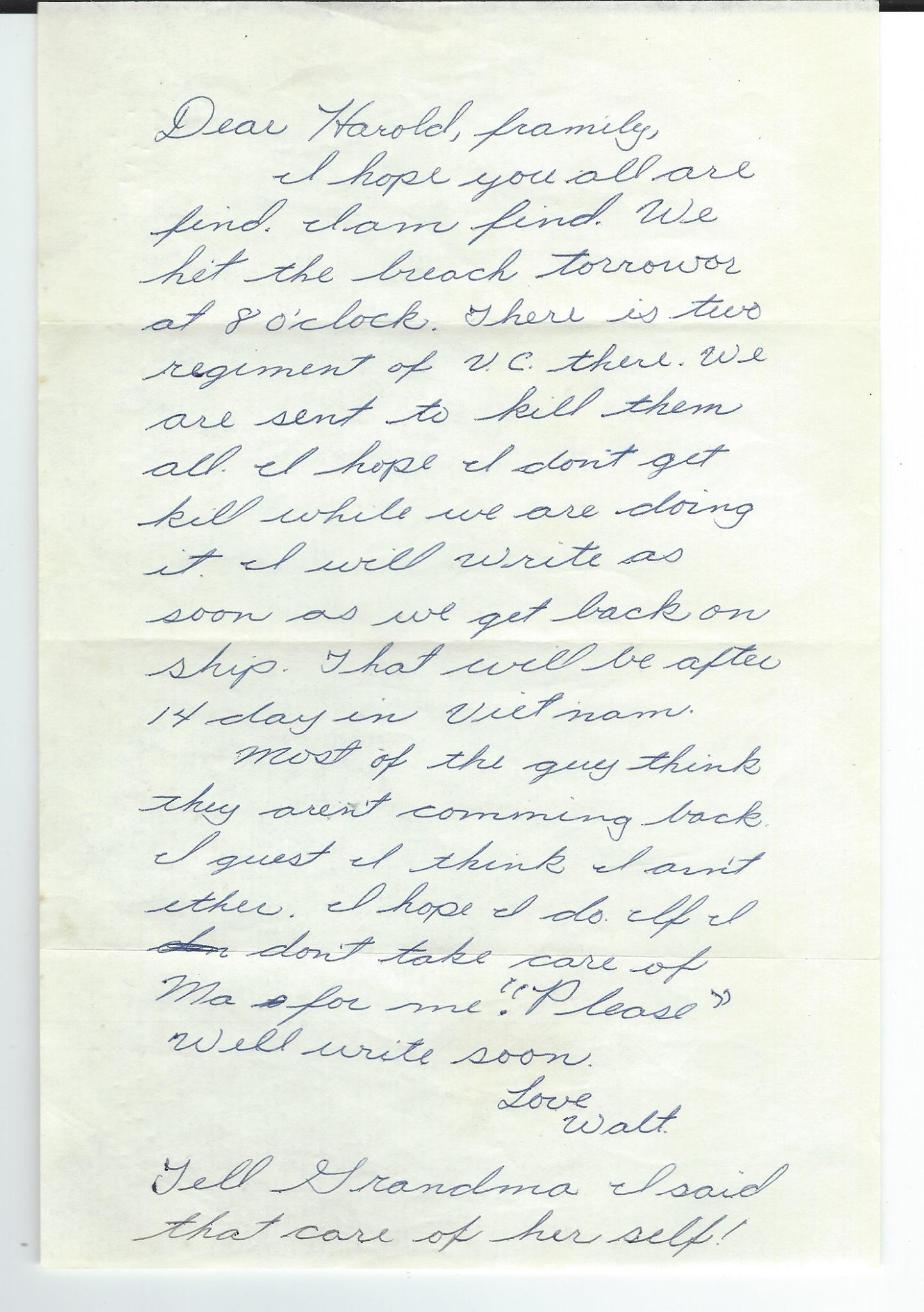 Dear Harold, framily,
I hope you all are
find. I am find. We
hit the breach torrowor
at 8 o'clock. There is two
regiment of V.C. there. We
are sent to kill them
all. I hope I don't get
kill while we are doing
it. I will write as
soon as we get back on
ship. That will be after
14 day in Viet nam.
Most of the guy think
they aren't comming back.
I guest I think I ain't
ither. I hope I do. If I
don't take care of
Ma for me. "Please"
Well write soon.
Love
Walt.
Tell Grandma I said
that care of her self!